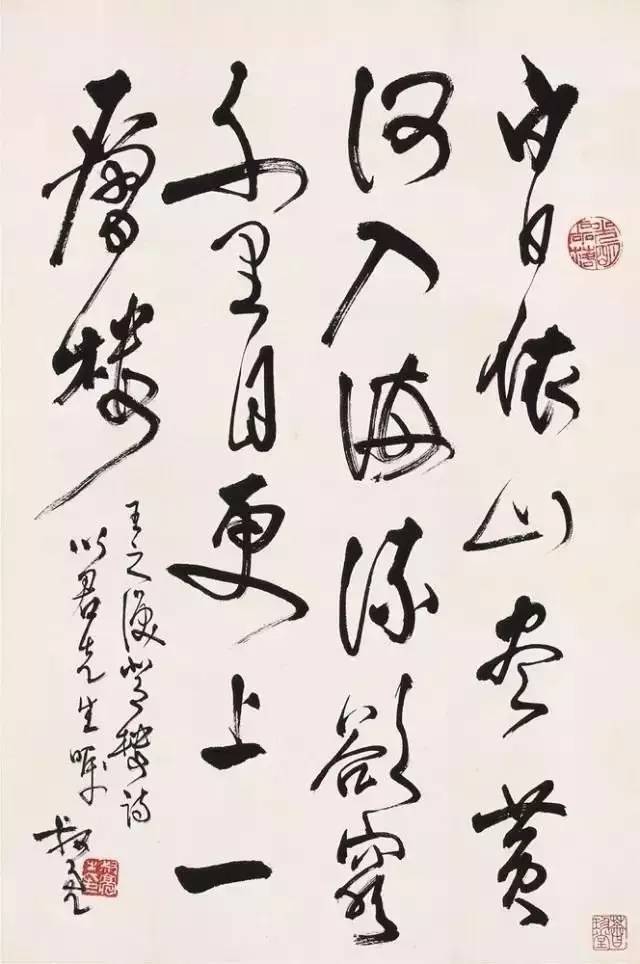 白日依山尽黄
河入海流欲穷
千里目更上一
層楼
王之渙登楼诗
以君先生嘱
叔亮